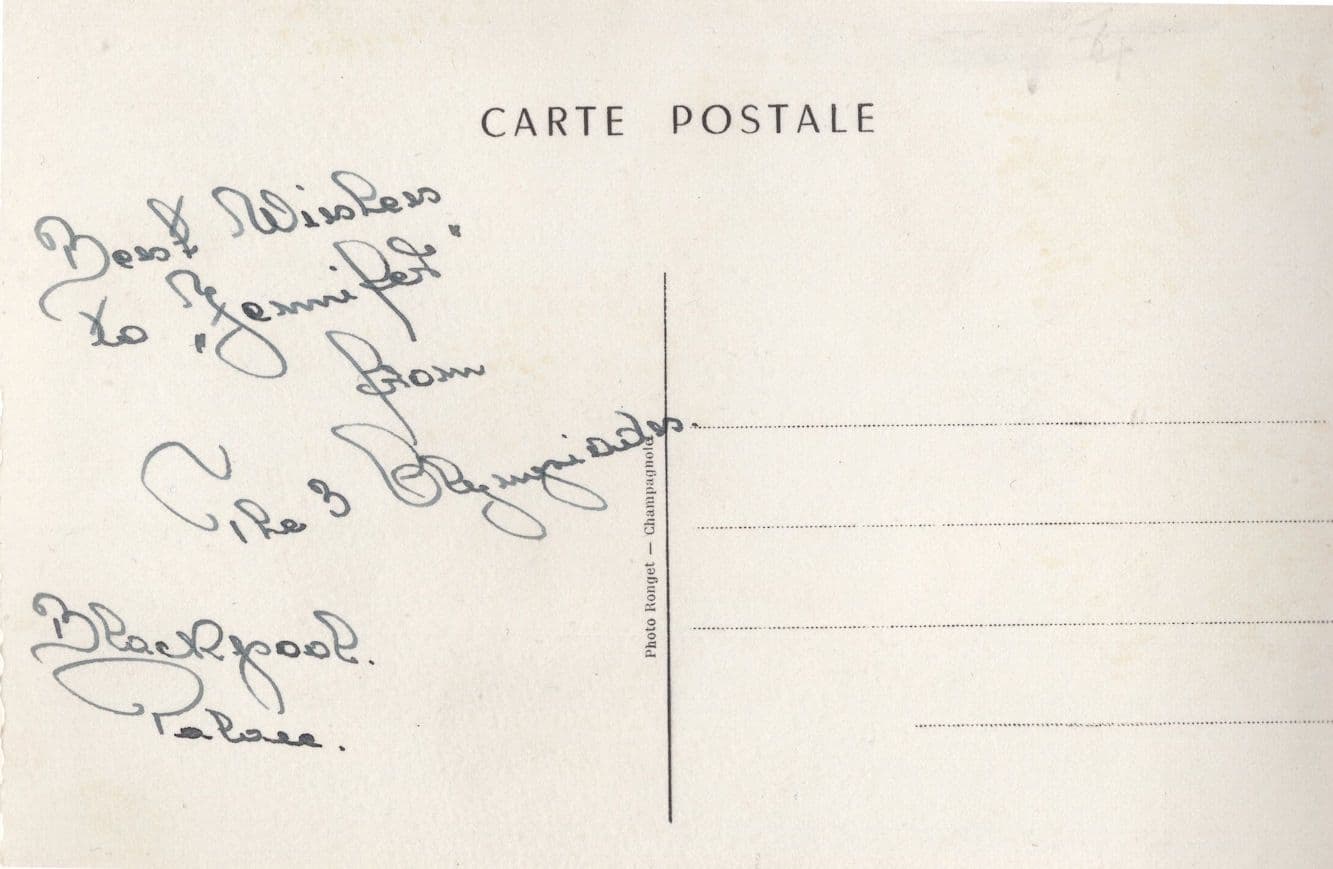 CARTE POSTALE
Best Wishess
to "Jennifer"
from
The 3 Olympiades.
Blackpool.
Palace.
Photo Ronget — Champagnole